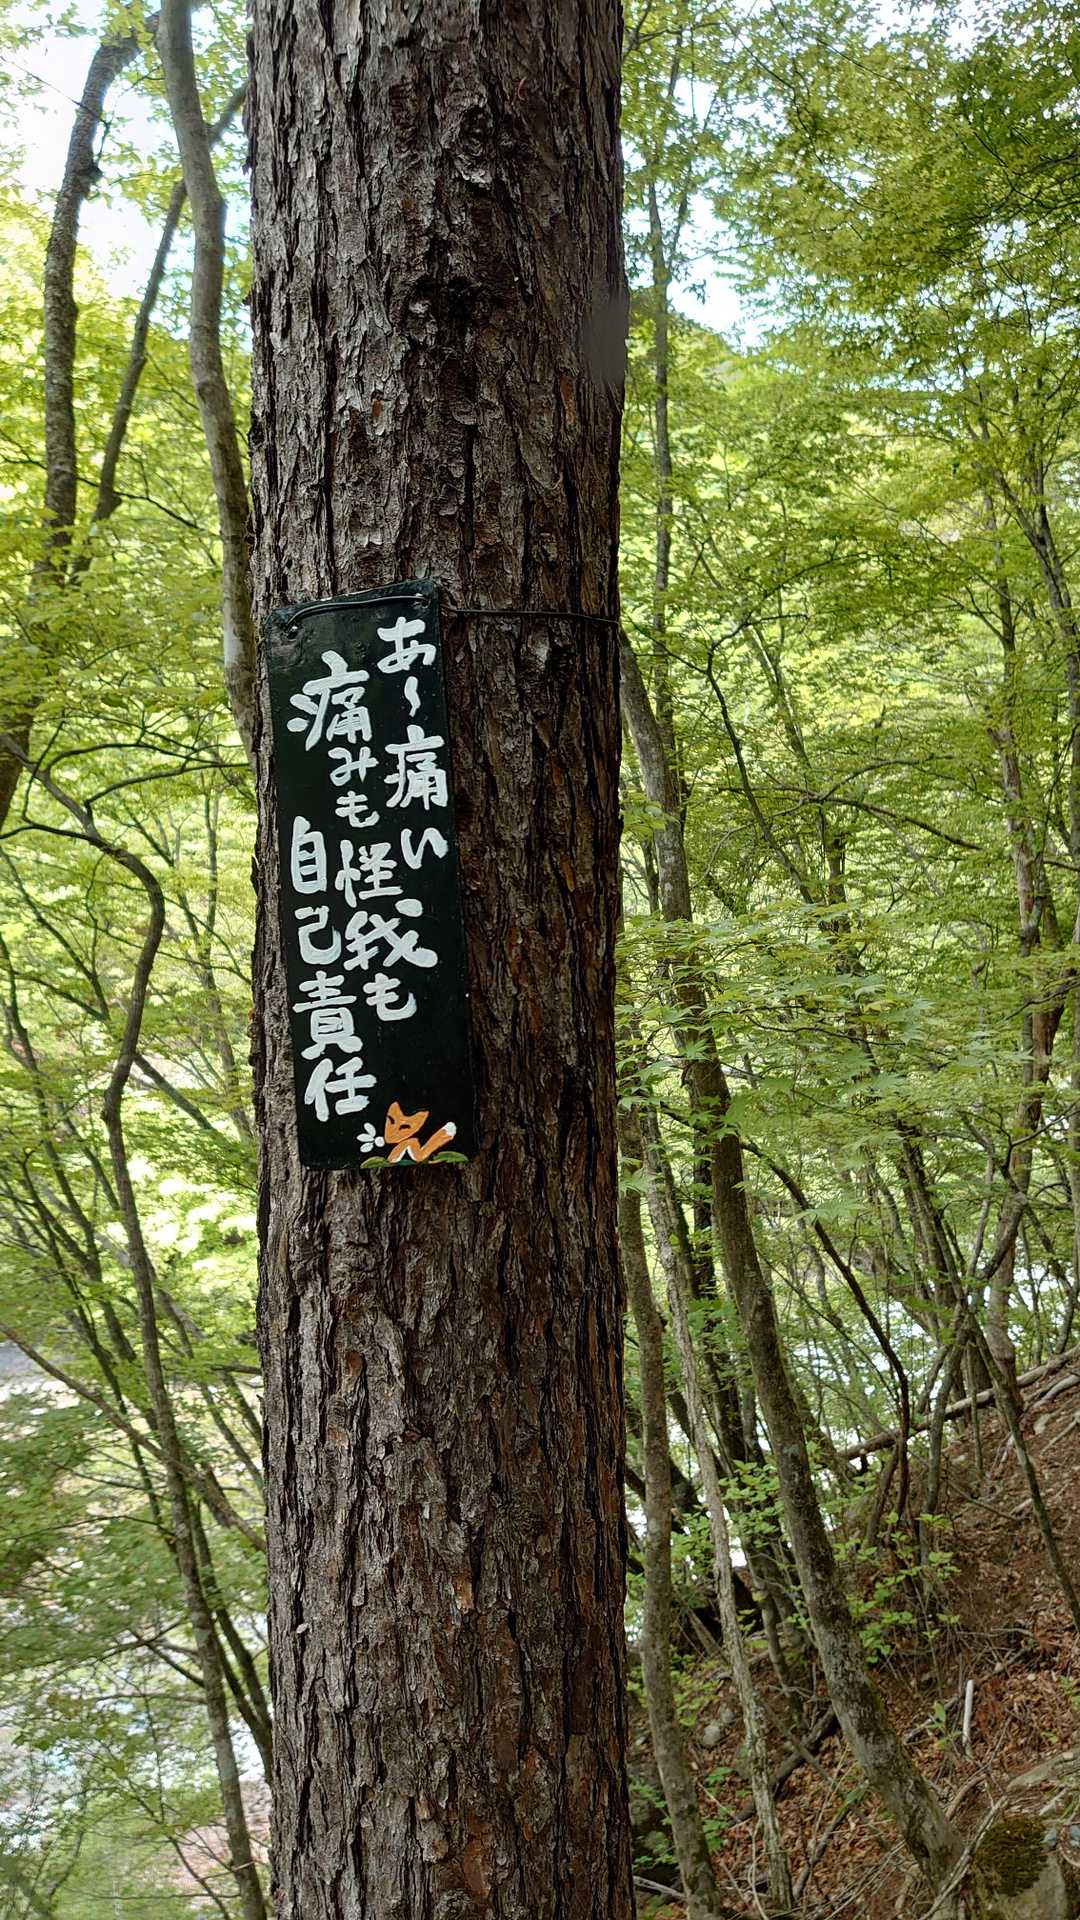 あ〜痛い
痛みも怪我も
自己責任